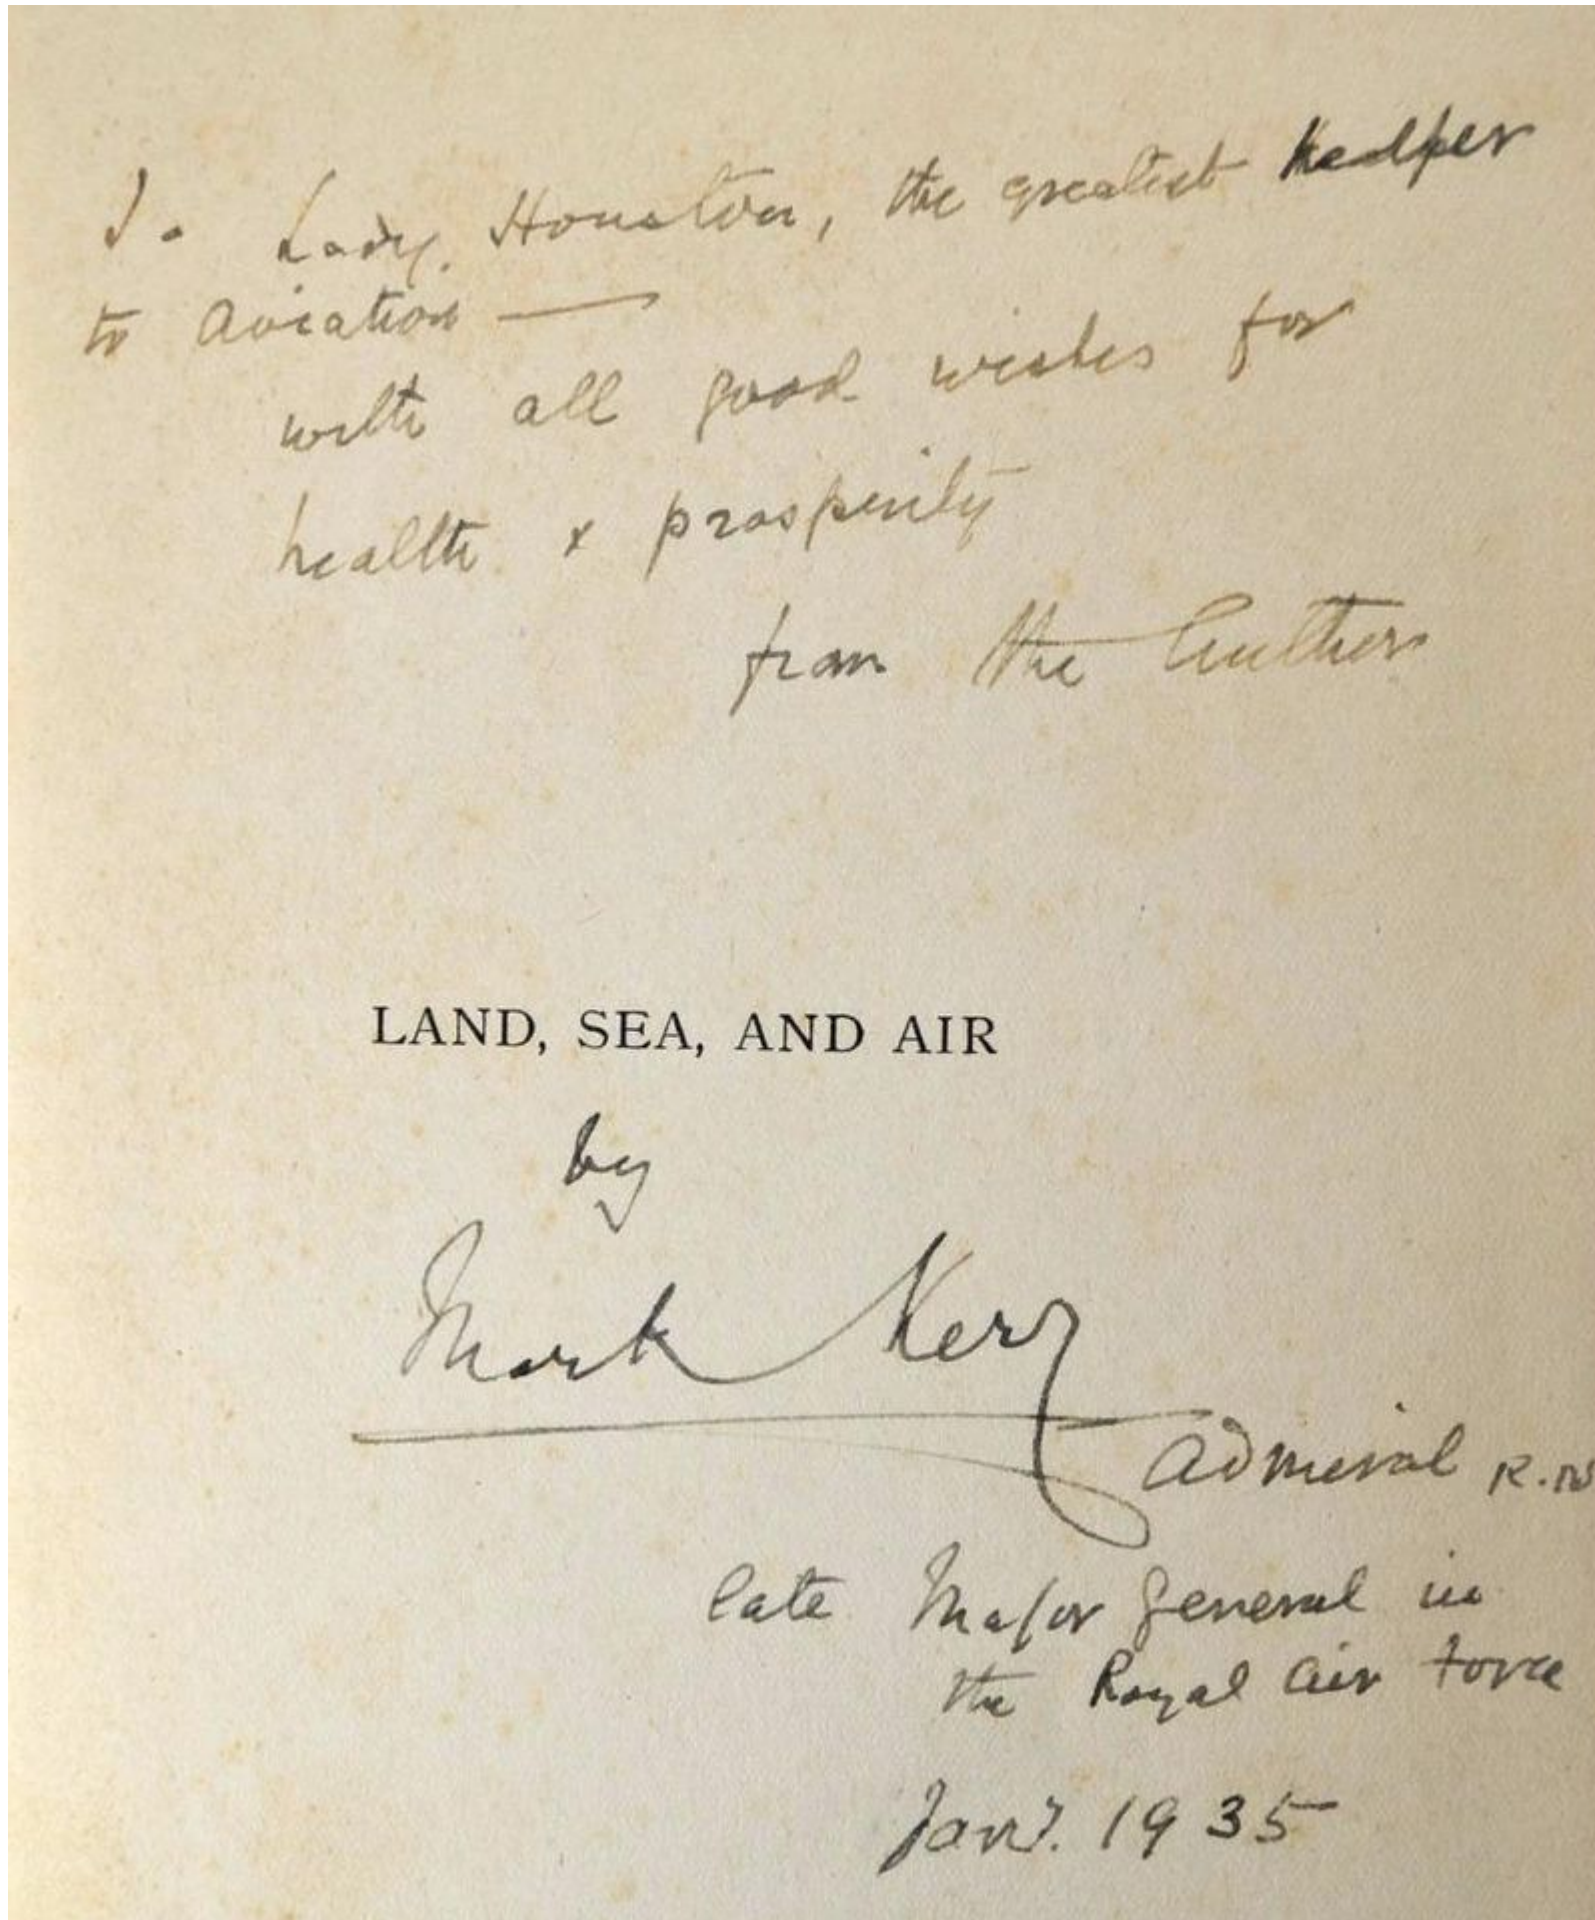 To Lady Houston, the greatest helper
to Aviation —
with all good wishes for
health & prosperity
from the Author
LAND, SEA, AND AIR
by
Mark Kerr
Admiral R.N
late Major General in
the Royal Air Force
Jany. 1935